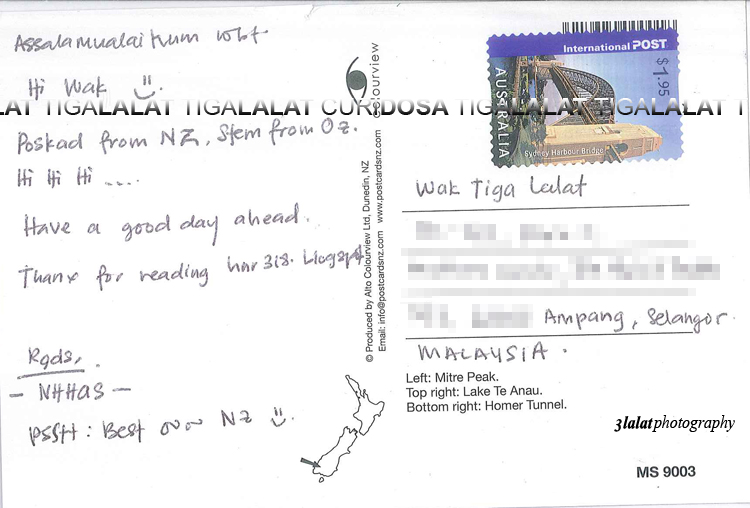 Assalamualaikum wbt
Hi Wak
LAT TIGALALAT TIGALALAT CURIDOSA TIGALALAT TIGALALAT T
Poskad from NZ, Stem from Oz.
Hi Hi Hi ....
Have a good day ahead.
Thanx for reading hnr318.
Rgds,
- NHHAS -
psstt : Best NZ
colourview
© Produced by Alto Colourview Ltd, Dunedin, NZ
Email: info@postcardsnz.com www.postcardsnz.com
International POST
$1.95
AUSTRALIA
Sydney Harbour Bridge
Wak Tiga Lalat
Ampang, Selangor.
MALAYSIA.
Left: Mitre Peak.
Top right: Lake Te Anau.
Bottom right: Homer Tunnel.
3lalatphotography
MS 9003